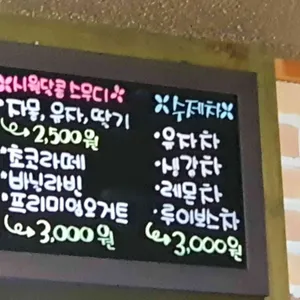 시월닷콤 스무디
·자몽, 유자, 딸기
2,500원
·초코라떼
·바닐라빈
·프리미엄요거트
3,000원
수제차
·유자차
·생강차
·레몬차
·루이보스차
3,000원